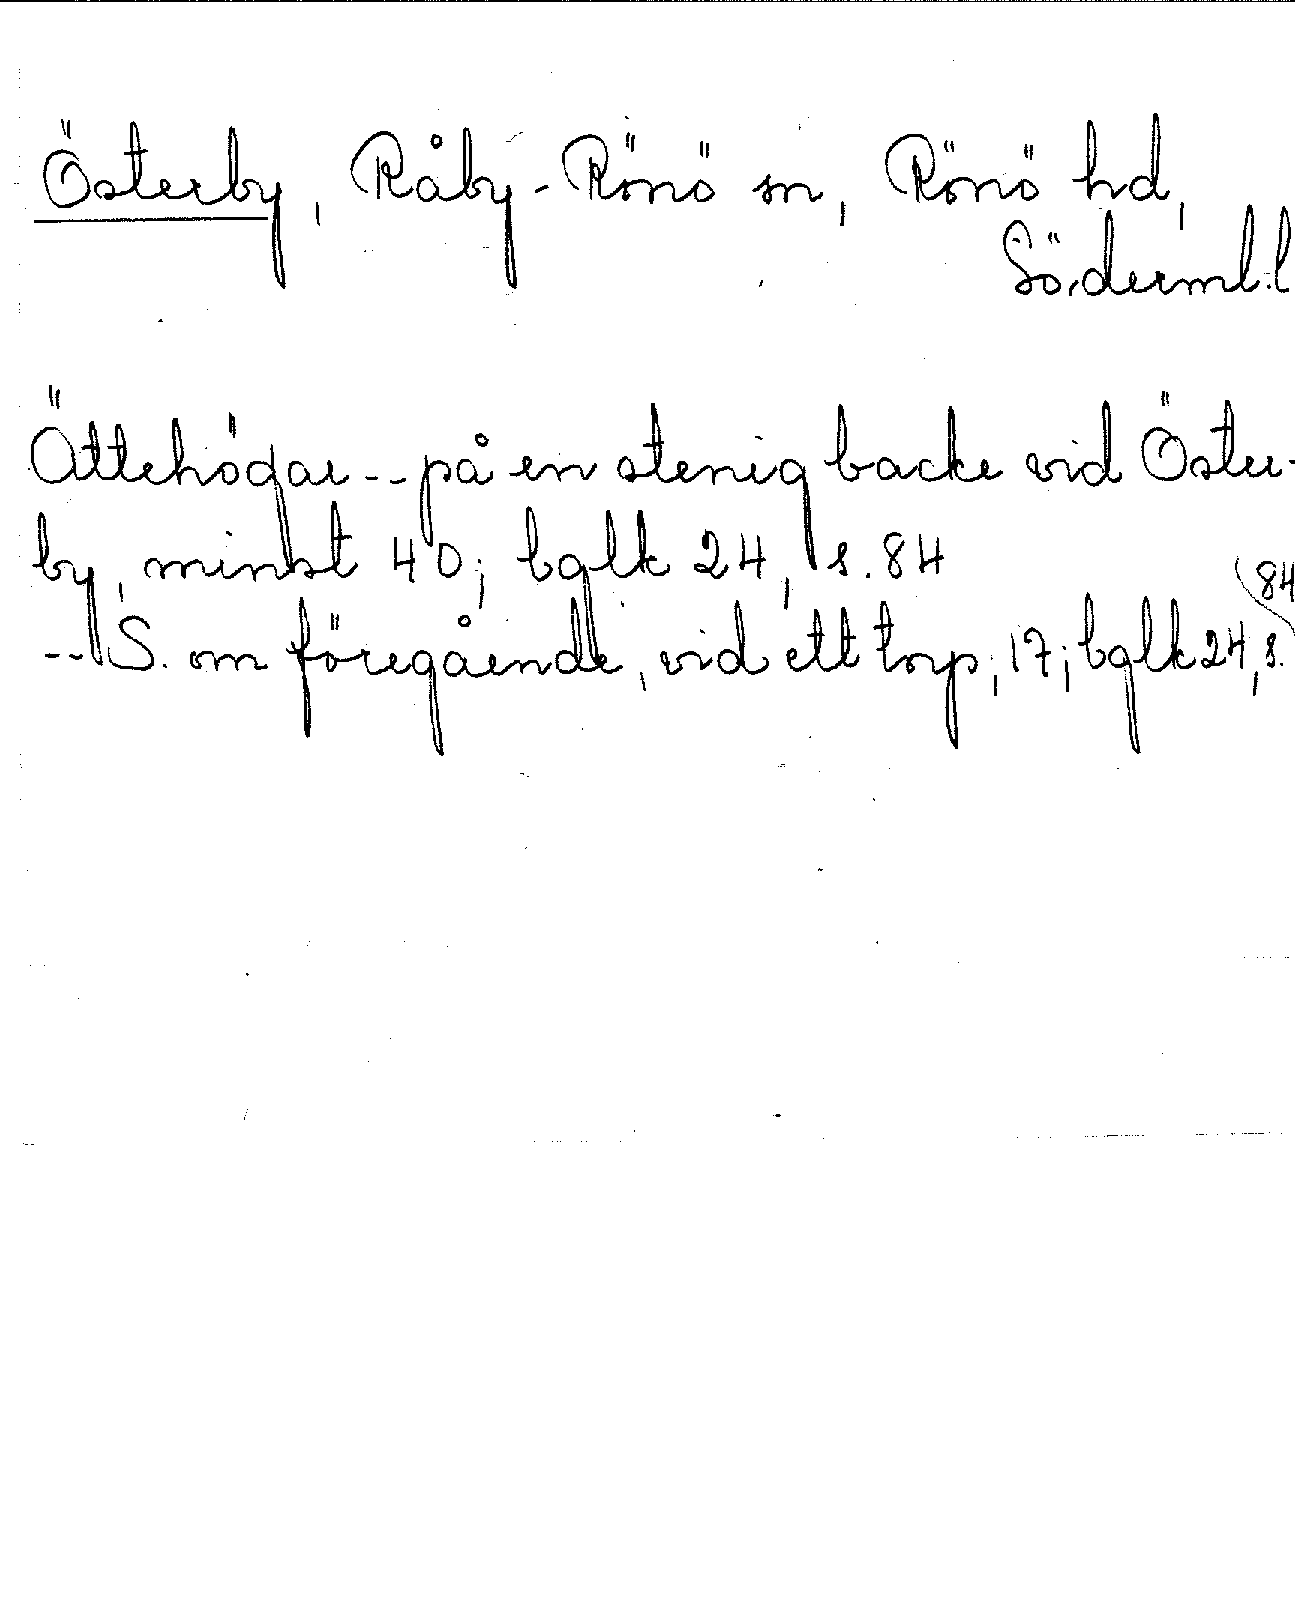 Österby, Råby-Rönö sn, Rönö hd,
Söderml. l
Ättehögar -- på en stenig backe vid Öster-
by, minst 40; bglk 24, s. 84
-- S. om föregående, vid ett torp, 17; bglk 24, s.
84